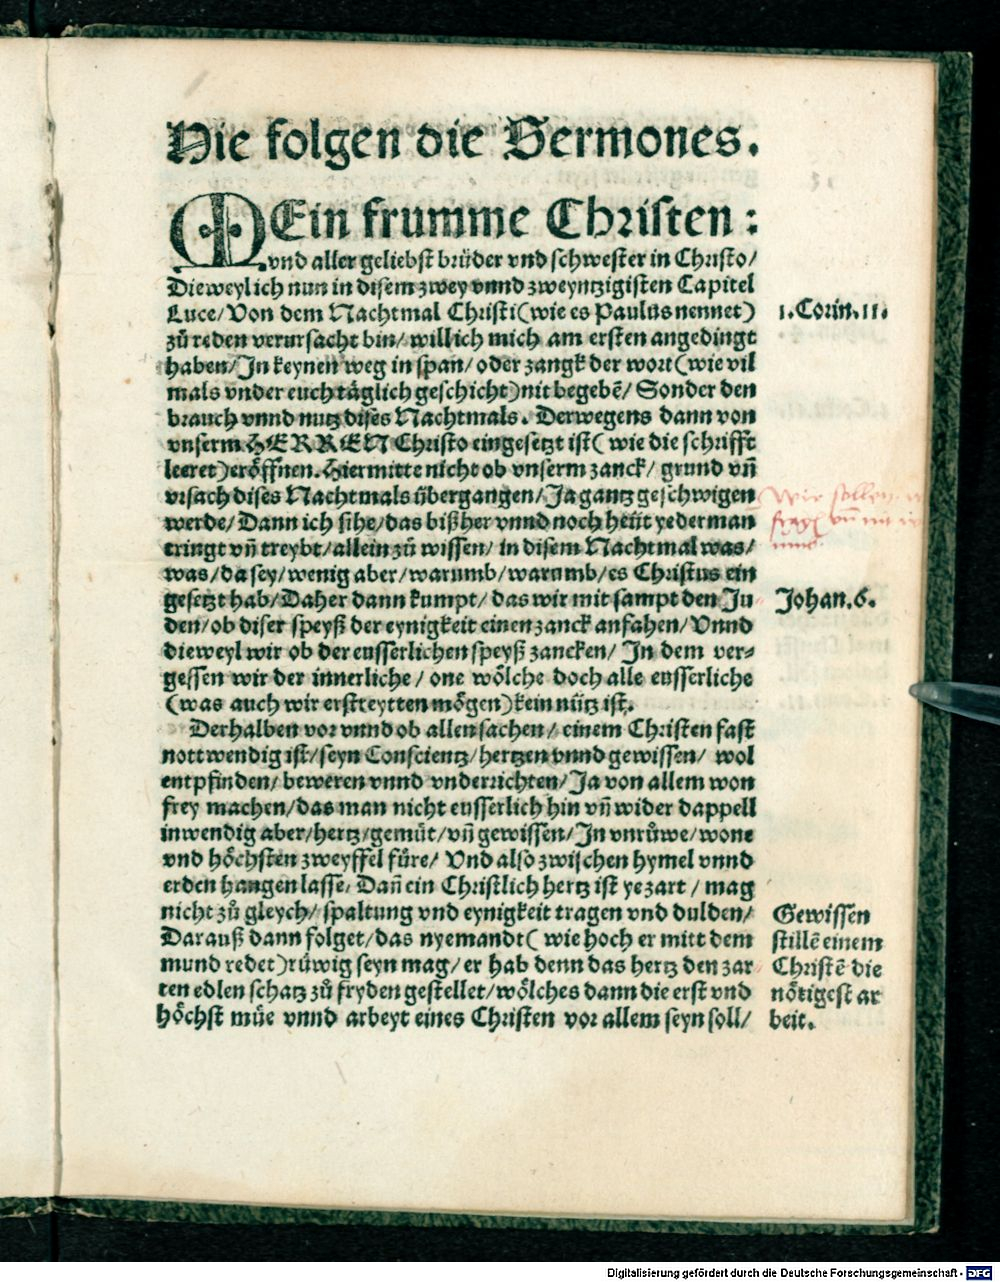 Hie folgen die Sermones.
MEin frumme Christen:
vnd aller geliebst brüder vnd schwester in Christo/
Dieweyl ich nun in disem zwey vnnd zweyntzigisten Capitel
Luce/ Von dem Nachtmal Christi (wie es Paulus nennet)
zů reden verursacht bin/ will ich mich am ersten angedingt
haben/ In keynen weg in span/ oder zangk der wort (wie vil
mals vnder euch täglich geschicht) nit begebē/ Sonder den
brauch vnnd nutz dises Nachtmals. Derwegens dann von
vnserm HERREN Christo eingesetzt ist (wie die schrifft
leeret) eröffnen. Hiermitte nicht ob vnserm zanck/ grund vñ
vrsach dises Nachtmals übergangen/ Ja gantz geschwigen
werde/ Dann ich sihe/ das bißher vnnd noch heüt yederman
tringt vñ treybt/ allein zů wissen/ in disem Nachtmal was/
was/ da sey/ wenig aber/ warumb/ warumb/ es Christus ein
gesetzt hab/ Daher dann kumpt/ das wir mit sampt den Ju
den/ ob diser speyß der eynigkeit einen zanck anfahen/ Vnnd
dieweyl wir ob der eusserlichen speyß zancken/ In dem ver-
gessen wir der innerliche/ one wölche doch alle eusserliche
(was auch wir erstreytten mögen) kein nütz ist.
Derhalben vor vnnd ob allen sachen/ einem Christen fast
nottwendig ist/ seyn Conscientz/ hertzen vnnd gewissen/ wol
entpfinden/ beweren vnnd vnderrichten/ Ja von allem won
frey machen/ das man nicht eusserlich hin vñ wider dappell
inwendig aber/ hertz/ gemüt/ vñ gewissen/ In vnrůwe/ wone
vnd höchsten zweyffel füre/ Vnd also zwischen hymel vnnd
erden hangen lasse/ Dañ ein Christlich hertz ist ye zart/ mag
nicht zů gleych/ spaltung vnd eynigkeit tragen vnd dulden/
Darauß dann folget/ das nyemandt (wie hoch er mitt dem
mund redet) rüwig seyn mag/ er hab denn das hertz den zar
ten edlen schatz zů fryden gestellet/ wölches dann die erst vnd
höchst müe vnnd arbeyt eines Christen vor allem seyn soll/
1. Corin. 11.
Wir sollen
vñ
Johan. 6.
Gewissen
stillē einem
Christē die
nötigest ar
beit.
Digitalisierung gefördert durch die Deutsche Forschungsgemeinschaft - DFG